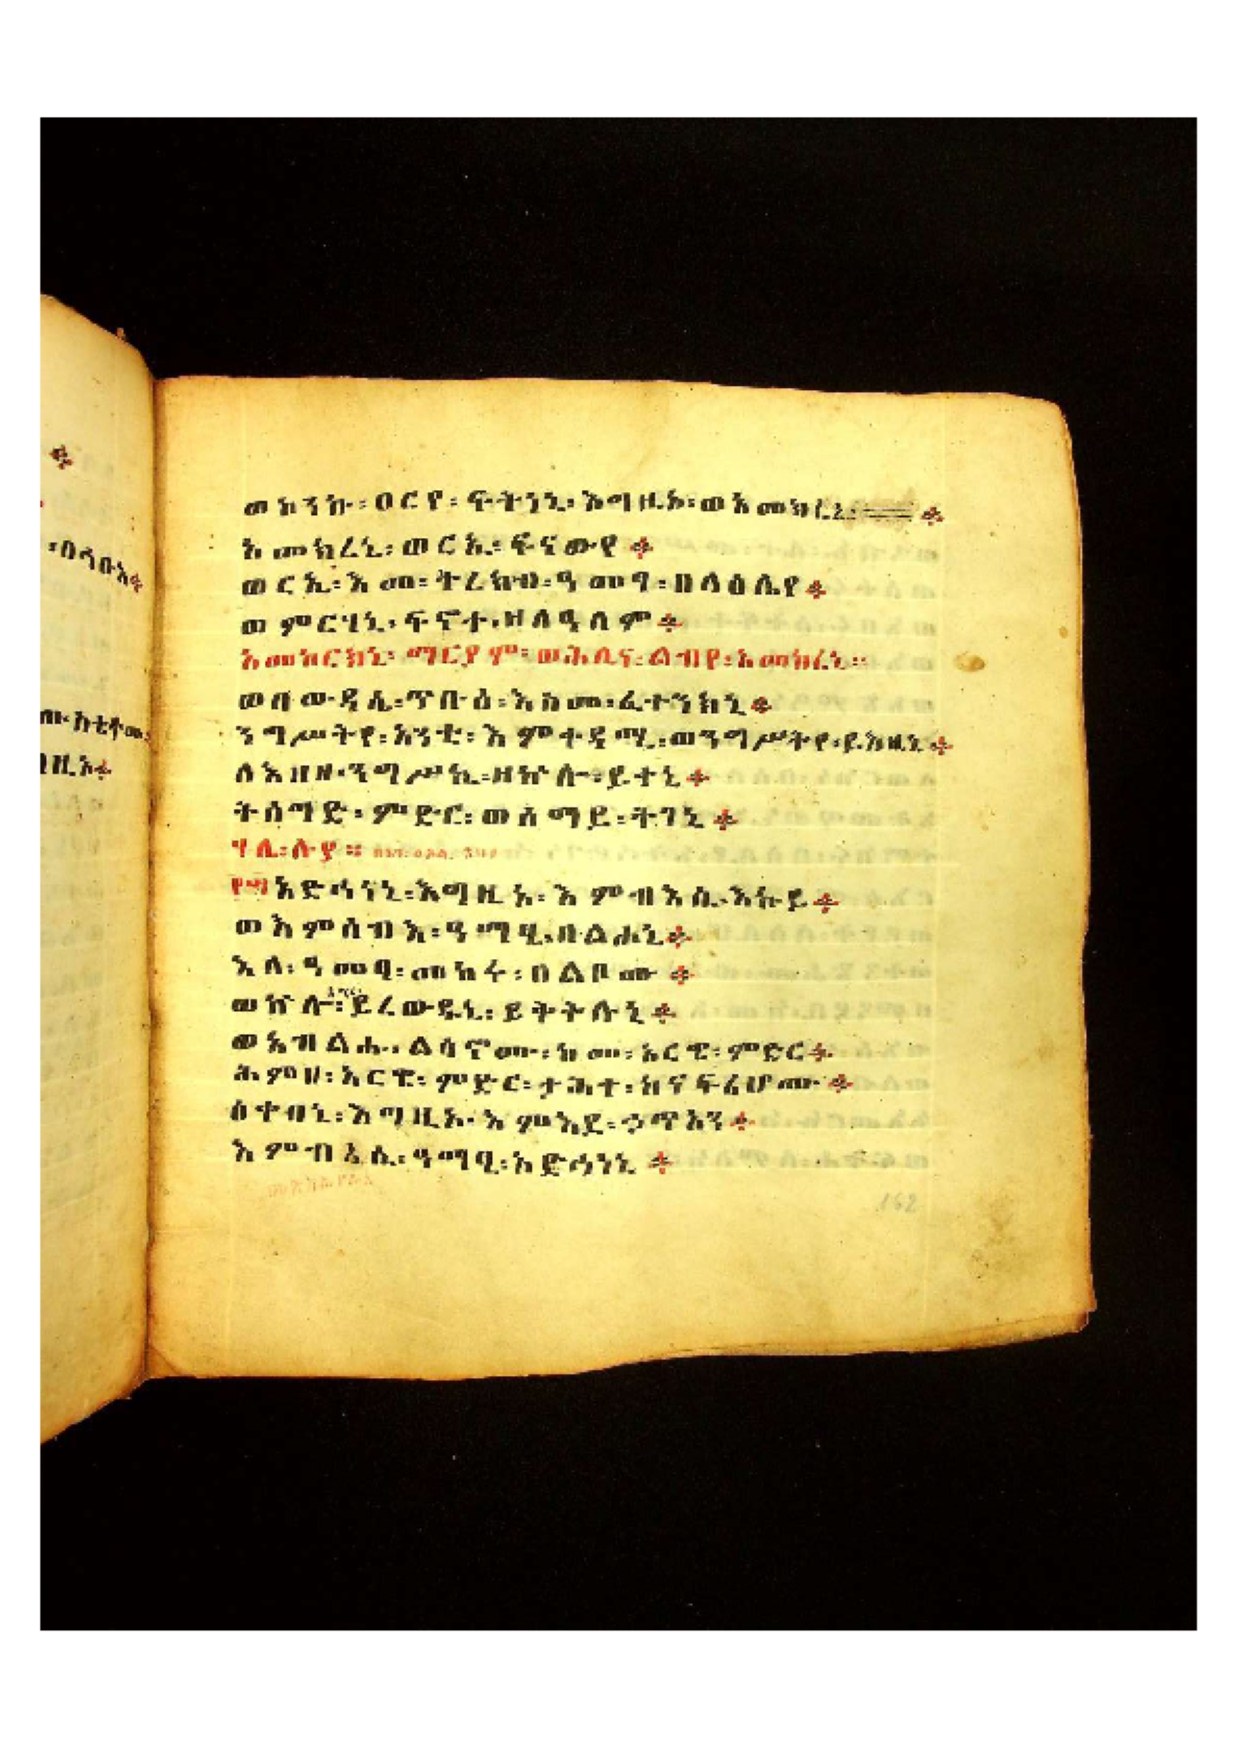 ወኮንኩ፡ ዐርየ፡ ፍትነኒ፡ እግዚኦ፡ ወአመክረኒ፡
አመክረኒ፡ ወርኢ፡ ፍናውየ ።
ወርኢ፡ እመ፡ ትረክብ፡ ዓመፃ፡ በላዕሌየ ።
ወምርሃኒ፡ ፍኖተ፡ ዘለዓለም ።
አመከርክኒ፡ ማርያም፡ ወሕሊና፡ ልብየ፡ አመክረኒ ።
ወበውዳሴ፡ ጥቡዕ፡ እስመ፡ ፈተንክኒ ።
ንግሥትየ፡ አንቲ፡ እምተዲሚ፡ ወንግሥትየ፡ ይእዜኒ ።
ለአዘዘ፡ ንግሥኪ፡ ዘኵሉ፡ ይተኒ ።
ትሰግድ፡ ምድር፡ ወሰማይ፡ ትገኒ ።
ሃሌ፡ ሉያ ።
አድኅነኒ፡ እግዚኦ፡ እምብእሲ፡ እኩይ ።
ወእምሰብእ፡ ዓማፂ፡ ባልሐኒ ።
እለ፡ ዓመፃ፡ መከሩ፡ በልቦሙ ።
ወኵሉ፡ ይረውዱኒ፡ ይትትሉኒ ።
ወአብልሑ፡ ልሳኖሙ፡ ከመ፡ አርዌ፡ ምድር ።
ሕምዘ፡ አርዌ፡ ምድር፡ ታሕተ፡ ከናፍሪሆሙ ።
ዕቀበኒ፡ እግዚኦ፡ እምእደ፡ ኃጥአን ።
እምብእሲ፡ ዓማፂ፡ አድኅነኒ ።
162